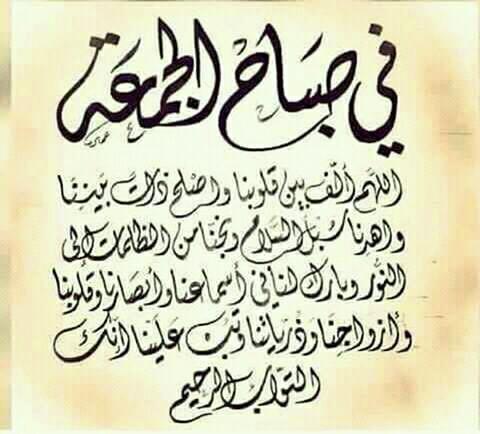 في صباح الجمعة
اللهم ألّف بين قلوبنا واصلح ذات بيننا
واهدنا سبل السلام ونجنا من الظلمات إلى
النور وبارك لنا في أسماعنا وأبصارنا وقلوبنا
وأزواجنا وذرياتنا وتب علينا انك
التواب الرحيم